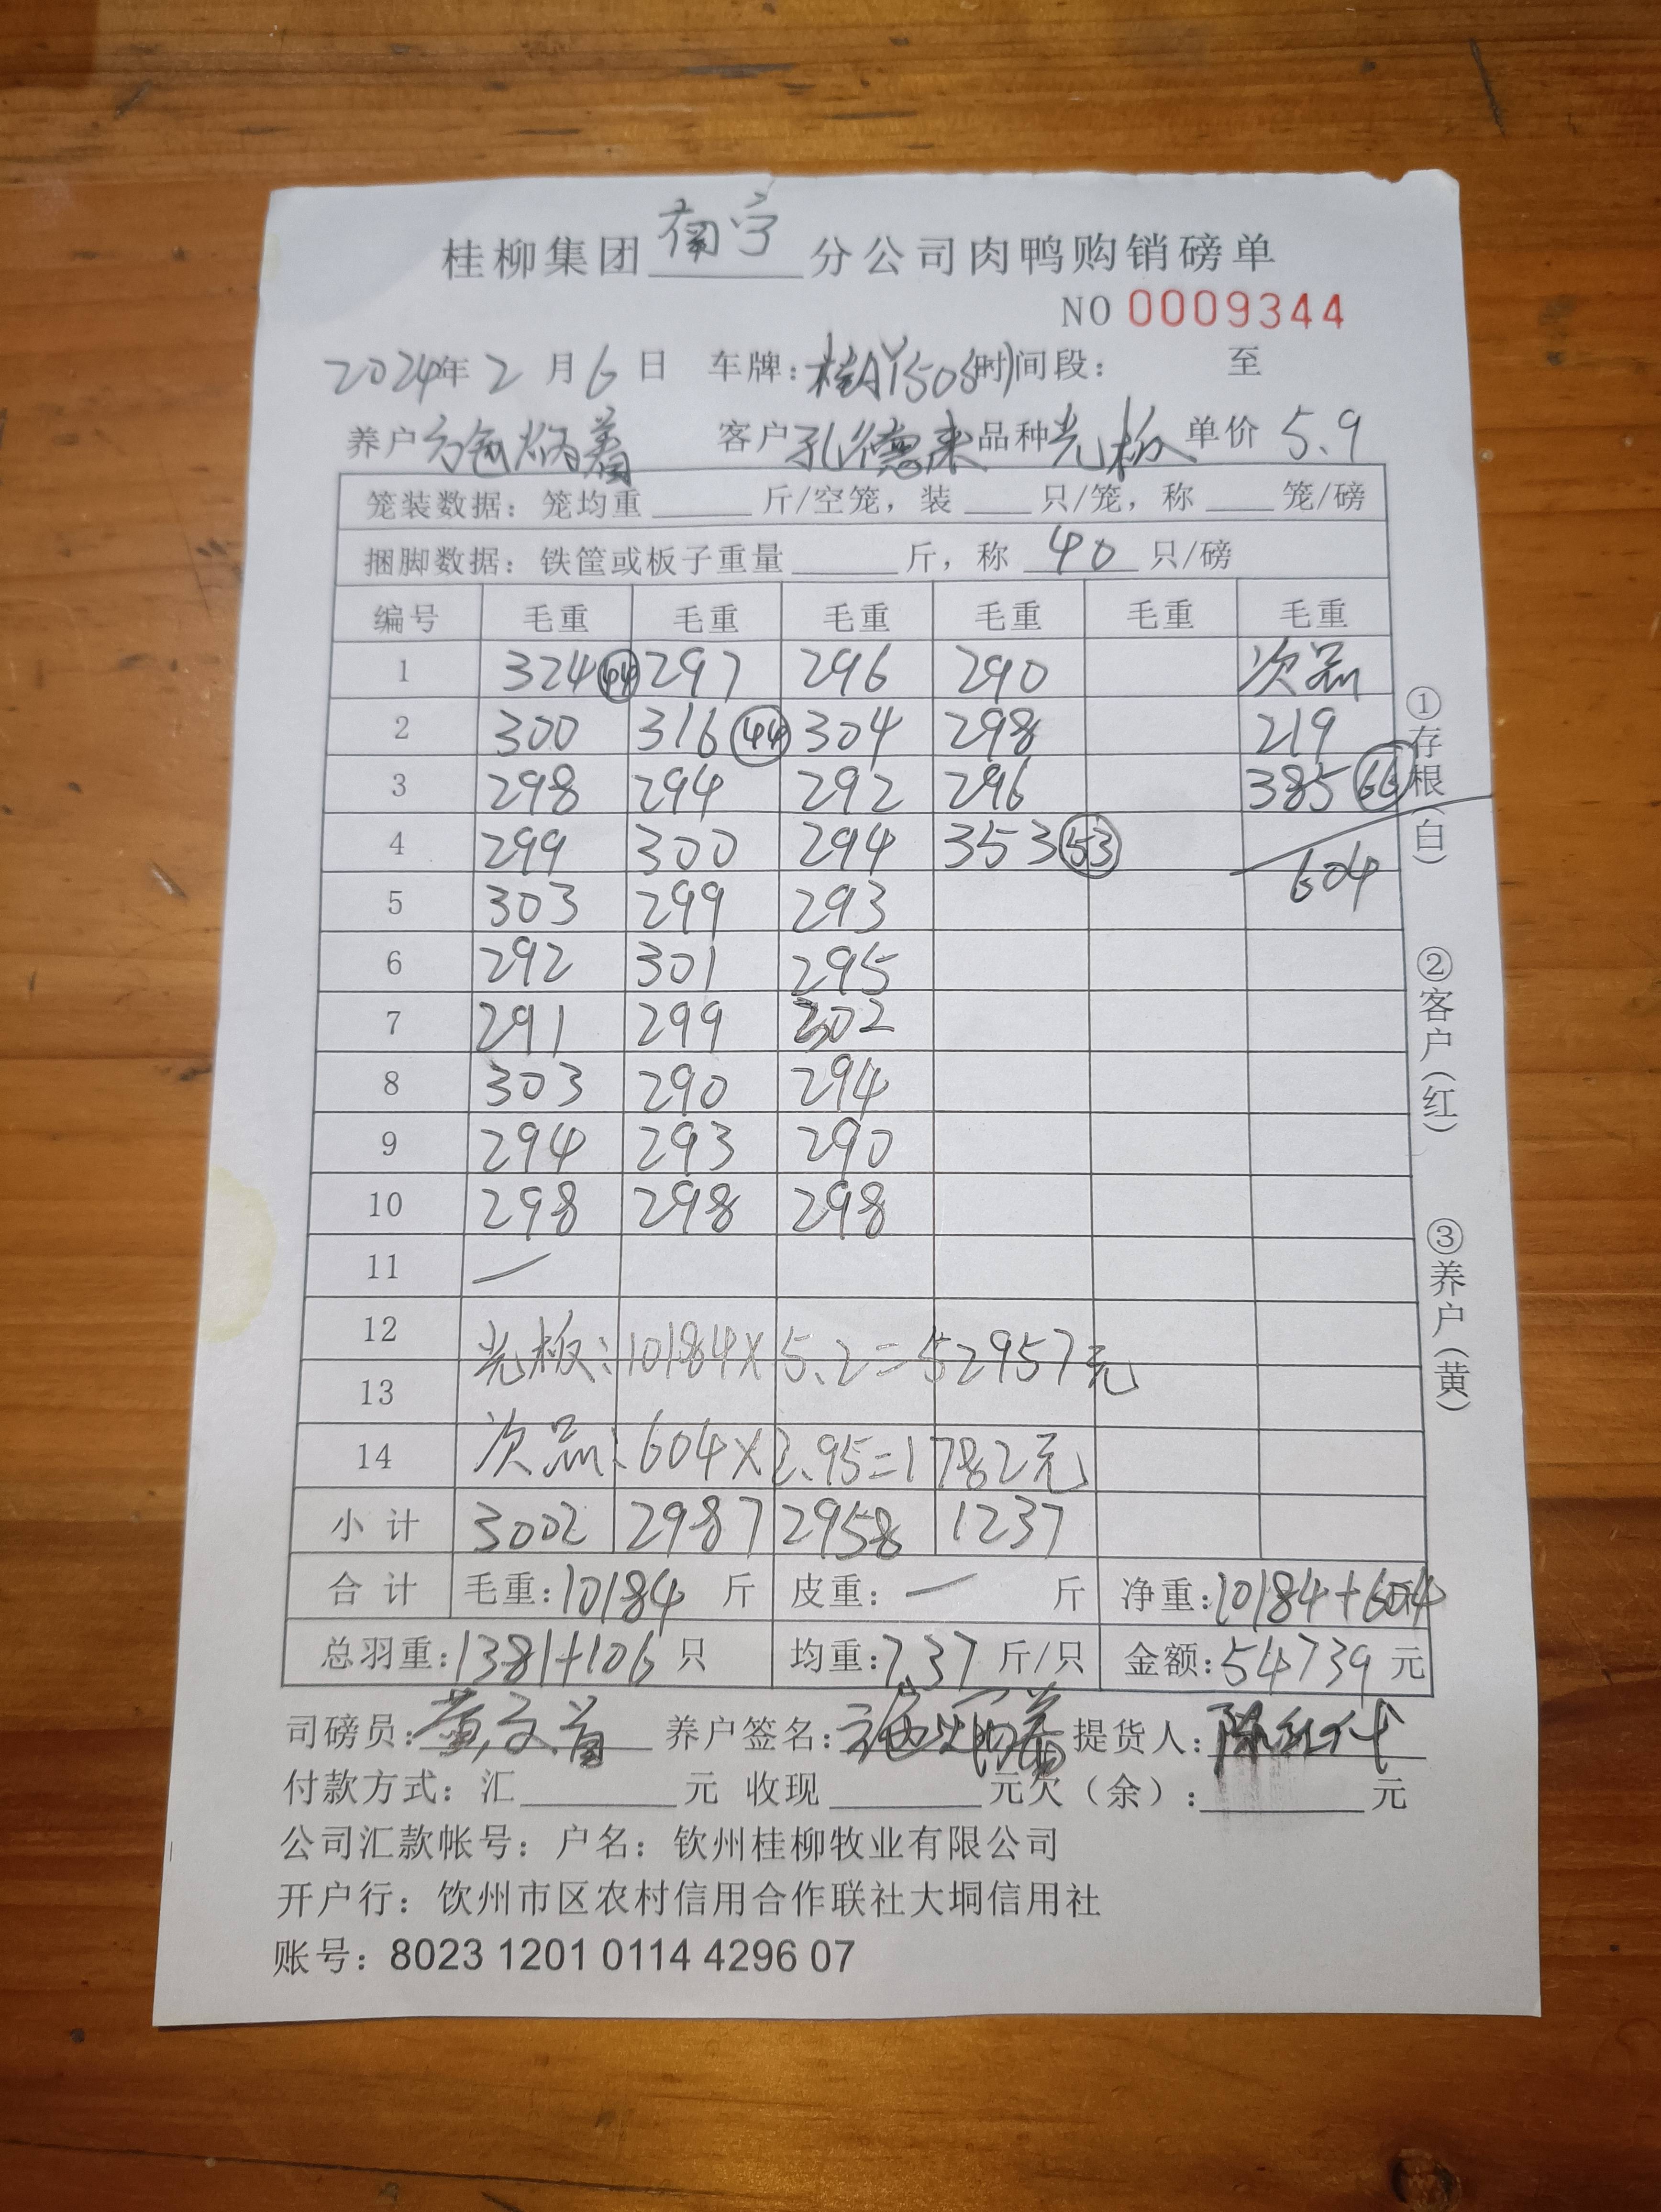 桂柳集团南宁分公司肉鸭购销磅单
NO 0009344
2024年2月6日 车牌: 时间段: 至
养户 客户孔德来品种光板单价5.9
笼装数据:笼均重 斤/空笼,装 只/笼,称 笼/磅
捆脚数据:铁筐或板子重量 斤,称 40 只/磅
编号 毛重 毛重 毛重 毛重 毛重 毛重
1 324 (44) 297 296 290 次品
2 300 316 (44) 304 298 219
3 298 294 292 296 385 (66)
4 299 300 294 353 (53) 604
5 303 299 293
6 292 301 295
7 291 299 302
8 303 290 294
9 294 293 290
10 298 298 298
11 —
12
光板:10184×5.2=52957元
13
14 次品:604×2.95=1782元
小计 3002 2987 2958 1237
合计 毛重:10184 斤 皮重:— 斤 净重:10184+604
总羽重:1381+106 只 均重:7.37 斤/只 金额:54739 元
司磅员: 养户签名: 提货人:
付款方式:汇 元 收现 元欠(余): 元
公司汇款帐号:户名:钦州桂柳牧业有限公司
开户行:饮州市区农村信用合作联社大垌信用社
账号:8023 1201 0114 4296 07
①存根(白)
②客户(红)
③养户(黄)